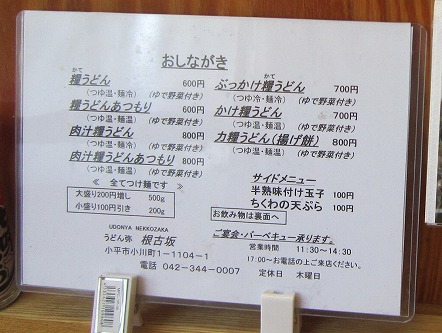 おしながき
かて
糧うどん 600円
（つゆ温・麺冷） (ゆで野菜付き)
糧うどんあつもり 600円
（つゆ温・麺温） (ゆで野菜付き)
肉汁糧うどん 800円
（つゆ温・麺冷） (ゆで野菜付き)
肉汁糧うどんあつもり 800円
（つゆ温・麺温） (ゆで野菜付き)
※ 全てつけ麺です
大盛り200円増し 500g
小盛り100円引き 200g
UDONYA NEKKOZAKA
うどん弥 根古坂
小平市小川町1ー1104ー1
電話 042ー344ー0007
かて
ぶっかけ糧うどん 700円
（つゆ冷・麺冷） (ゆで野菜付き)
かけ糧うどん 700円
（つゆ温・麺温） (ゆで野菜付き)
力糧うどん(揚げ餅) 800円
（つゆ温・麺温） (ゆで野菜付き)
サイドメニュー
半熟味付け玉子 100円
ちくわの天ぷら 100円
お飲み物は裏面へ
ご宴会・バーベキュー承ります。
営業時間 11:30～14:30
17:00～お電話の上ご来店ください。
定休日 木曜日